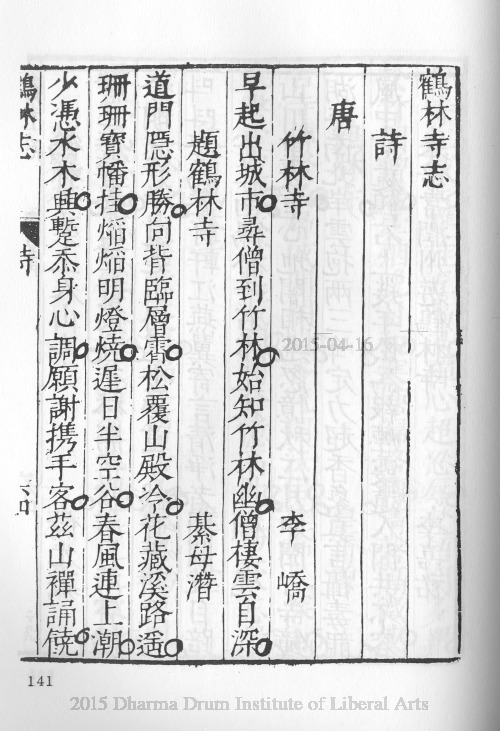 鶴林寺志
詩
唐
竹林寺 李嶠
早起出城市尋僧到竹林始知竹林幽僧棲雲自深
題鶴林寺 綦母潛
道門隱形勝向背臨層霄松覆山殿冷花藏溪路遙
珊珊寶幡挂熖熖明燈燒遲日半空谷春風連上潮
少憑水木興蹔忝身心調願謝携手客茲山禪誦饒
鶴林志 詩
141
2015-04-16
2015 Dharma Drum Institute of Liberal Arts